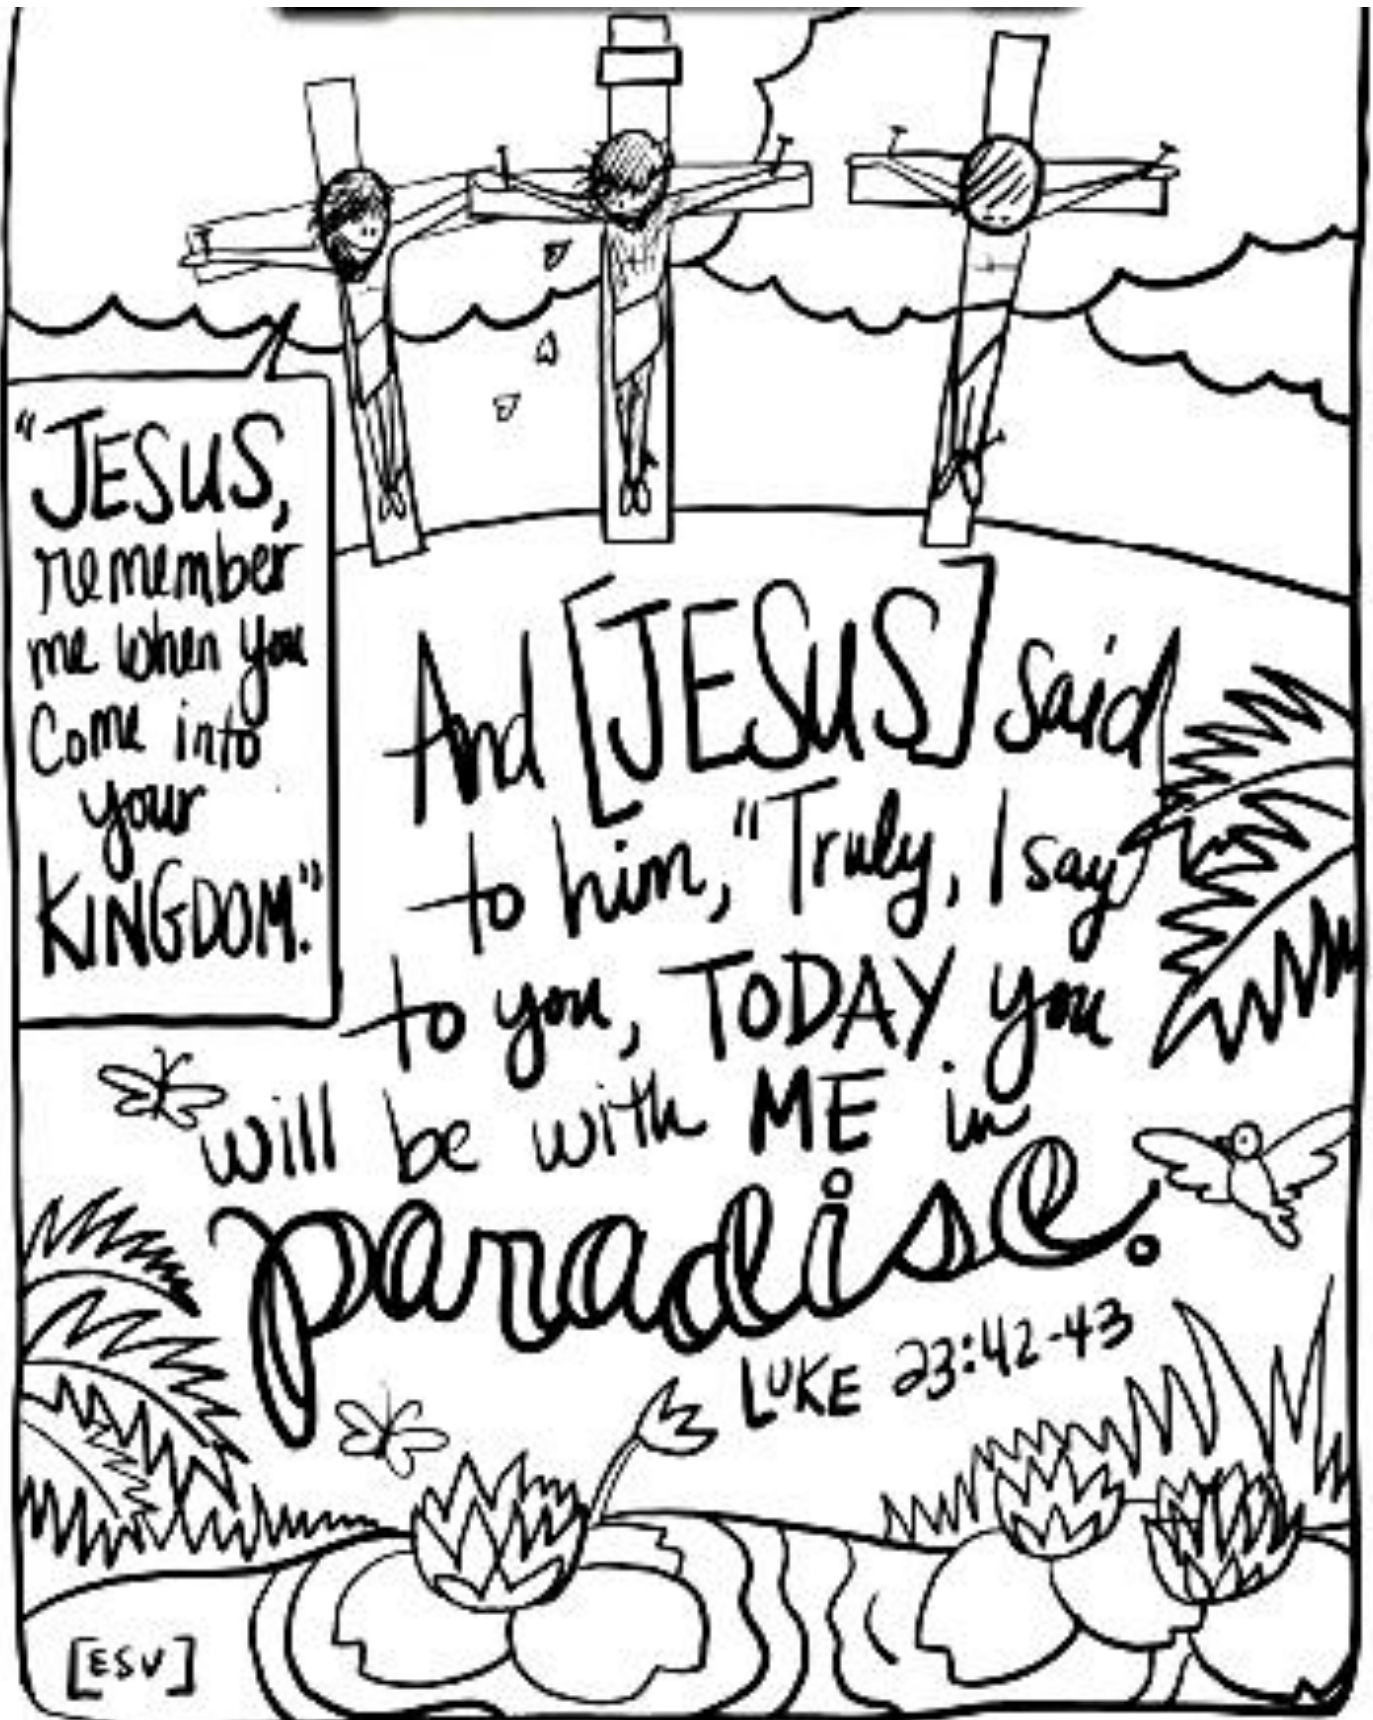 "JESUS,
remember
me when you
Come into
your
KINGDOM."
And [JESUS] said
to him, "Truly, I say
to you, TODAY you
will be with ME in
paradise.
LUKE 23:42-43
[ESV]